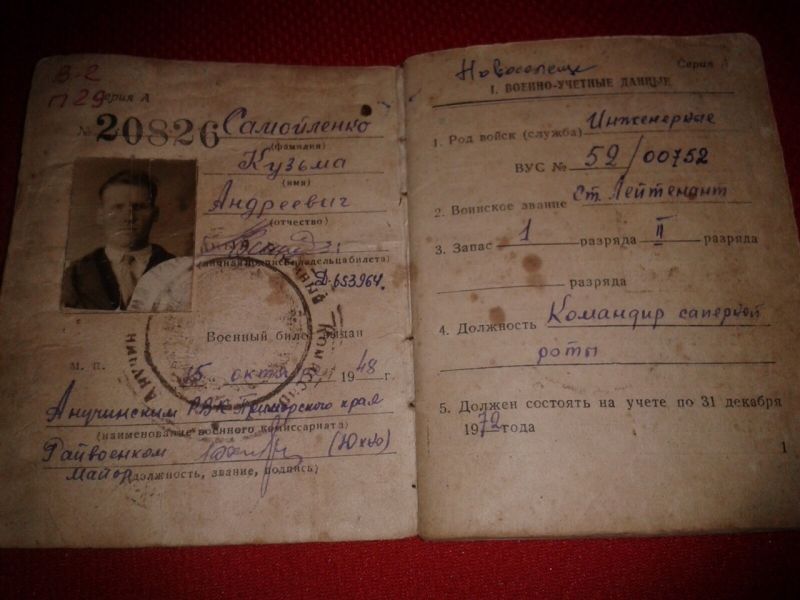 В-2
П29
Серия А
№ 20826 Самойленко
(фамилия)
Кузьма
(имя)
Андреевич
(отчество)
(личная подпись владельца билета)
Д-653964.
Военный билет выдан
М. П.
15 октя 1948 г.
Анучинским РВК Приморского края
(наименование военного комиссариата)
Райвоенком
Майор (должность, звание, подпись)
Серия А
I. ВОЕННО-УЧЕТНЫЕ ДАННЫЕ
1. Род войск (служба) Инженерные
ВУС № 52/00752
2. Воинское звание Ст. Лейтенант
3. Запас 1 разряда II разряда
разряда
4. Должность Командир саперной
роты
5. Должен состоять на учете по 31 декабря
1972 года
1